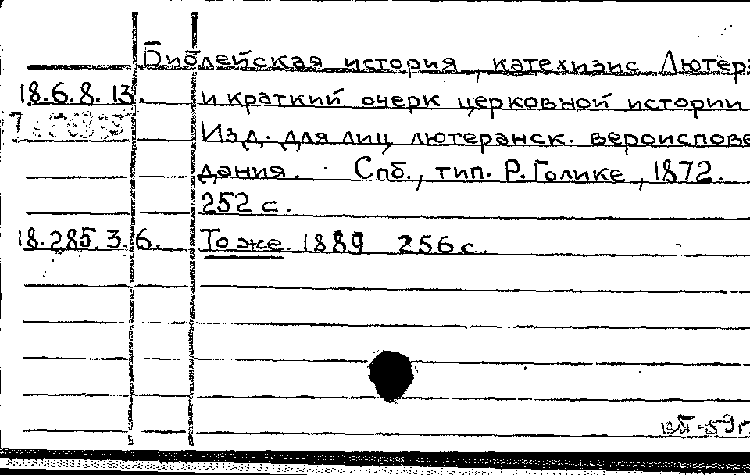 Библейская история, катехизис Лютера
18.6.8.13. и краткий очерк церковной истории
Изд. для лиц лютеранск. вероиспове
дания. Спб., тип. Р. Голике, 1872.
252 с.
18.285.3.6. То же. 1889 256 с.